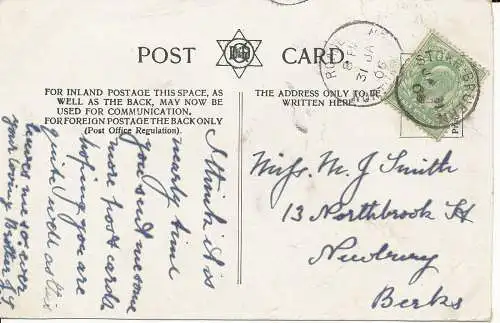 POST CARD.
FOR INLAND POSTAGE THIS SPACE, AS
WELL AS THE BACK, MAY NOW BE
USED FOR COMMUNICATION.
FOR FOREIGN POSTAGE THE BACK ONLY
(Post Office Regulation).
THE ADDRESS ONLY TO BE
WRITTEN HERE.
I think it is
nearly time
you sent me some
more post cards
hoping you are
quite well as this
leaves me so ever
your loving Brother
Miss. M. J Smith
13 Northbrook St
Newbury
Berks
31 JA